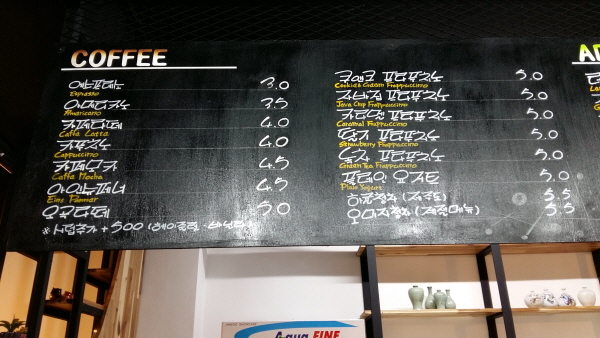 COFFEE
에스프레소 3.0
Espresso
아메리카노 3.5
Americano
카페라떼 4.0
Caffe Latte
카푸치노 4.0
Cappuccino
카페모카 4.5
Caffe Mocha
아인슈페너 4.5
Eins Pannar
5.0
※ 시럽추가 + 500
쿠앤크 프라프치노 5.0
Cookies Cream Frappuccino
자바칩 프라프치노 5.0
Java Chip Frappuccino
카라멜 프라프치노 5.0
Caramel Frappuccino
딸기 프라프치노 5.0
Strawberry Frappuccino
녹차 프라프치노 5.0
Green Tea Frappuccino
플레인 요거트 5.0
Plain Yogurt
5.5
오미자 5.5
Aqua FINE